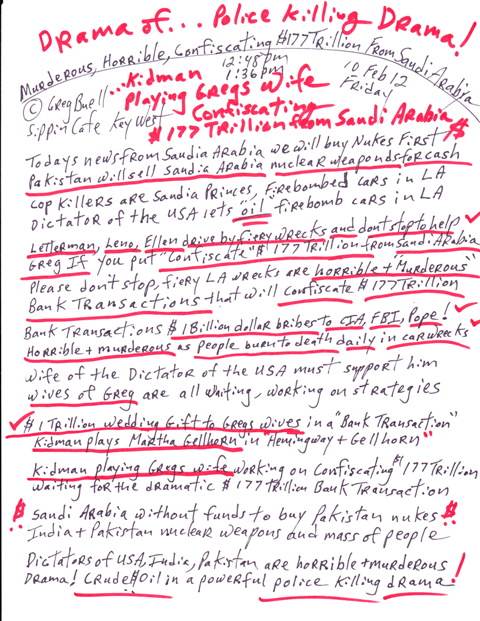 Drama of... Police Killing Drama!
Murderous, Horrible, Confiscating $177 Trillion From Saudi Arabia
12:48pm
1:36pm
10 Feb 12
Friday
© Greg Buell
Sippin Cafe Key West
...Kidman
Playing Gregs Wife
Confiscating
$177 Trillion from Saudi Arabia $
Todays news from Saudia Arabia we will buy Nukes First
Pakistan will sell Saudia Arabia nuclear weaponds for cash
Cop Killers are Saudia Princes, Firebombed cars in LA
Dictator of the USA lets "oil" firebomb cars in LA
Letterman, Leno, Ellen drive by fiery wrecks and don't stop to help
Greg If you put "Confiscate" $177 Trillion from Saudi Arabia
Please don't stop, fiery LA wrecks are horrible + "Murderous"
Bank Transactions that will Confiscate $177 Trillion
Bank Transactions $1 Billion dollar bribes to CIA, FBI, Pope!
Horrible + murderous as people burn to death daily in car wrecks
Wife of the Dictator of the USA must support him
Wives of Greg are all waiting, working on strategies
$1 Trillion wedding Gift to Gregs wives in a "Bank Transaction"
Kidman plays Martha Gellhorn in "Hemingway + Gellhorn"
Kidman playing Gregs wife working on Confiscating $177 Trillion
Waiting for the dramatic $177 Trillion Bank Transaction
$ Saudi Arabia without funds to buy Pakistan nukes $
India + Pakistan nuclear weapons and mass of people
Dictators of USA, India, Pakistan are horrible + murderous
Drama! Crude $ Oil in a powerful police killing drama!